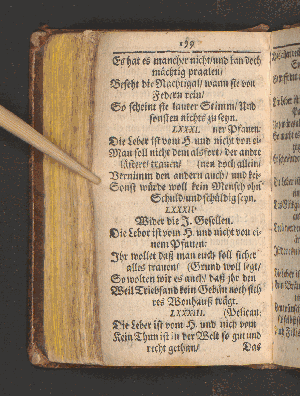 159
Es hat es mancher nicht/ und kan doch
mächtig praalen/
Beseht die Nachtigal/ wann sie von
Federn rein/
So scheint sie lauter Stimm/ Und
sonsten nichts zu seyn.
LXXXI.
Die Leber ist vom H. und nicht von ei-
ner Pfauen:
Man soll nicht dem als fort/ der andre
lästert trauen/
Vernimm den andern auch/ und kei-
nen doch allein/
Sonst würde woll kein Mensch ohn'
Schuld und schüldig seyn.
LXXXII.
Wider die J. Gesellen.
Die Leber ist vom H. und nicht von ei-
nem Pfauen:
Ihr wollet daß man euch soll sicher
alles trauen/ (Grund woll legt/
So wolten wir es auch/ daß ihr den
Weil Triebsand kein Gebäu noch sich-
res Wonhauß trägt.
LXXXIII. (Pelican:
Die Leber ist vom H. und nich vom
Kein Thun ist in der Welt so gut und
recht gethan/ Das